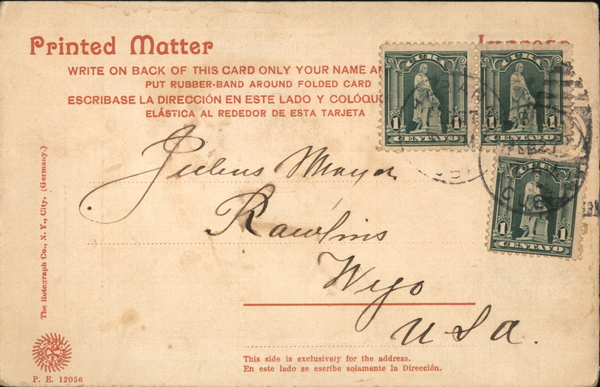 Printed Matter
WRITE ON BACK OF THIS CARD ONLY YOUR NAME
PUT RUBBER-BAND AROUND FOLDED CARD
ESCRIBASE LA DIRECCIÓN EN ESTE LADO Y
ELÁSTICA AL REDEDOR DE ESTA TARJETA
CUBA
1 1
CENTAVO
CUBA
1 1
CENTAVO
1 1
CENTAVO
Julius Mayer
Rawlins
Wyo
USA.
The Rotograph Co., N. Y., City. (Germany.)
P. E. 12056
This side is exclusively for the address.
En este lado se escribe solamente la Dirección.